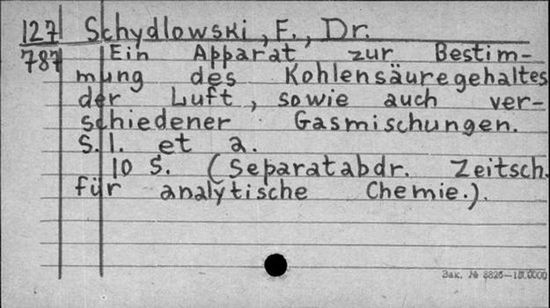 127 Schydlowski, F., Dr.
787 Ein Apparat zur Bestim-
mung des Kohlensäuregehaltes
der Luft, sowie auch ver-
schiedener Gasmischungen.
S. l. et a.
10 S. (Separatabdr. Zeitsch.
für analytische Chemie.).
Зак. №